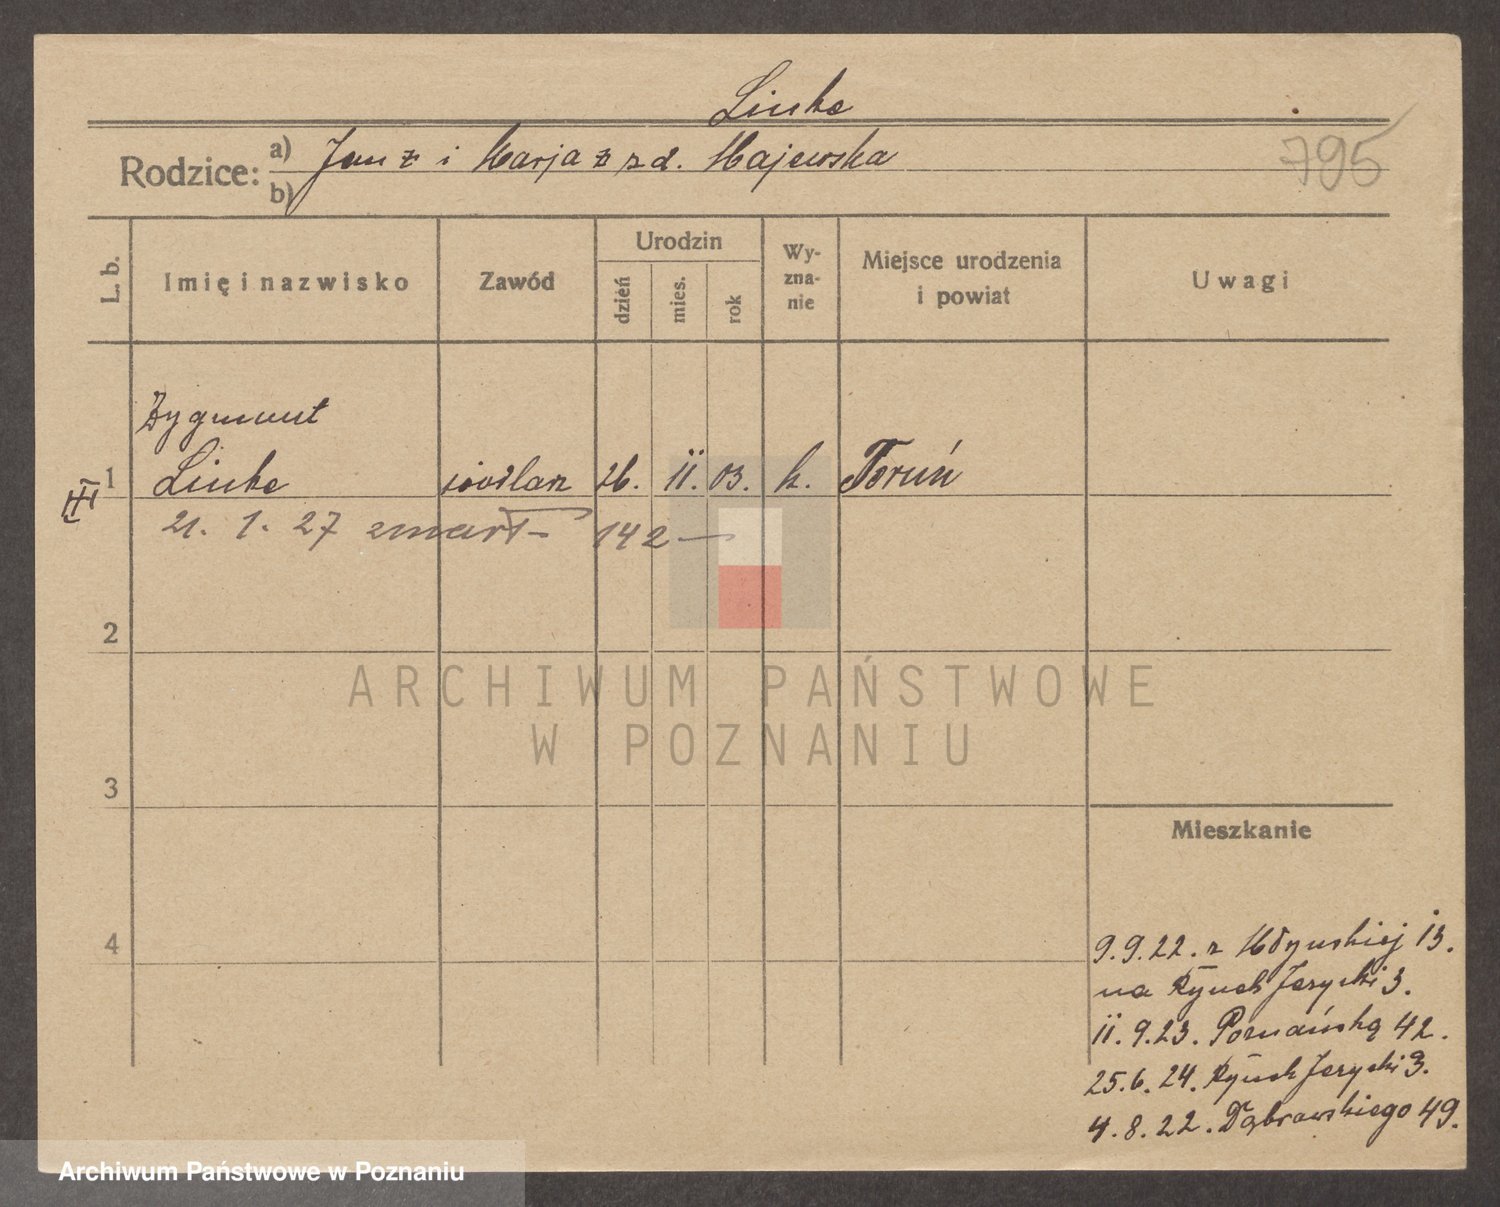 Linke
Rodzice: a) Jan ż i Marja ż z d. Majewska
b)
795
L. b. Imię i nazwisko Zawód Urodzin dzień mies. rok Wyznanie Miejsce urodzenia i powiat Uwagi
Zygmunt
III 1 Linke 26. 11. 03. k. Toruń
21. 1. 27 zmarł – 142 —
2
3
Mieszkanie
4
9.9.22. z Młyńskiej 13.
na Rynek Jerycki 3.
11.9.23. Poznańską 42.
25.6.24. Rynek Jerycki 3.
4.8.22. Dąbrowskiego 49.
ARCHIWUM PAŃSTWOWE
W POZNANIU
Archiwum Państwowe w Poznaniu